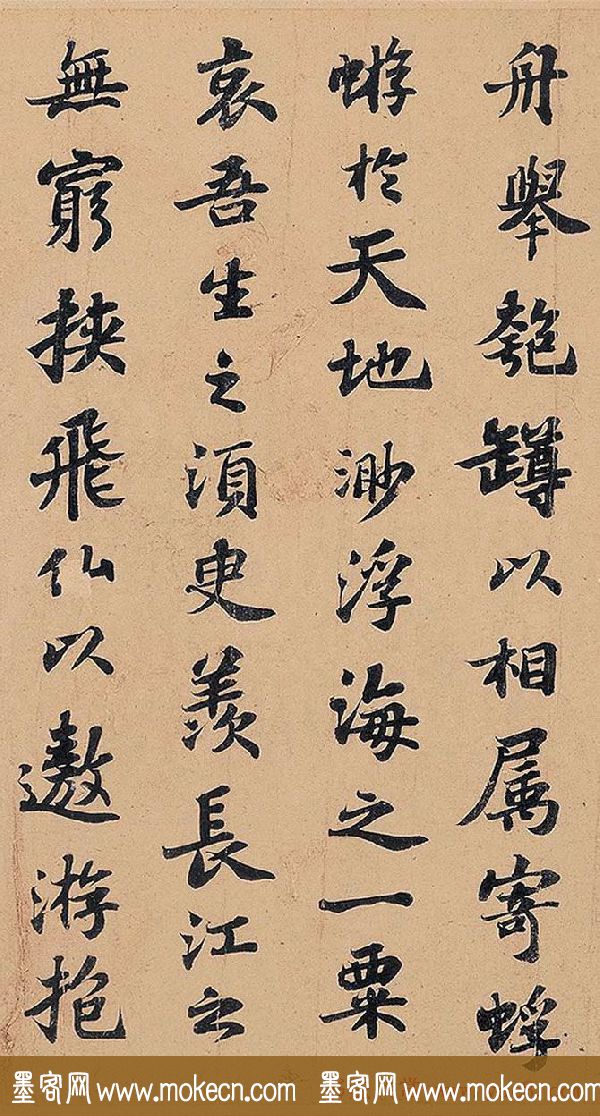 舟舉匏罇以相属寄蜉
蝣於天地渺浮海之一粟
哀吾生之湏臾羨長江之
無窮挾飛仙以遨游抱
墨客网 www.mokecn.com 墨客网 www.mokecn.com